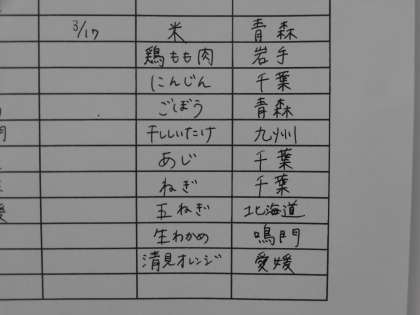 3/17 米 青森
鶏もも肉 岩手
にんじん 千葉
ごぼう 青森
干ししいたけ 九州
あじ 千葉
ねぎ 千葉
玉ねぎ 北海道
生わかめ 鳴門
清見オレンジ 愛媛